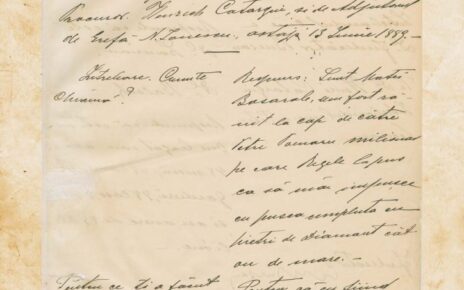 Procuror. Henrich Catargiu, și de Adjutant
de Grefă N. Ionescu, astăzi 13 Iunie 1889.
Întrebare. Cum te
chiamă?
Respuns: Sunt Matei
Basarab, am fost ră-
nit la cap de către
Petre milionar
pe care Regele l'a pus
ca să mă împusce
cu pusca umpluta cu
pietri de Diamant cât
ou de mare. –
Pentru ce ți-a făcut
Pentru că eu fiind